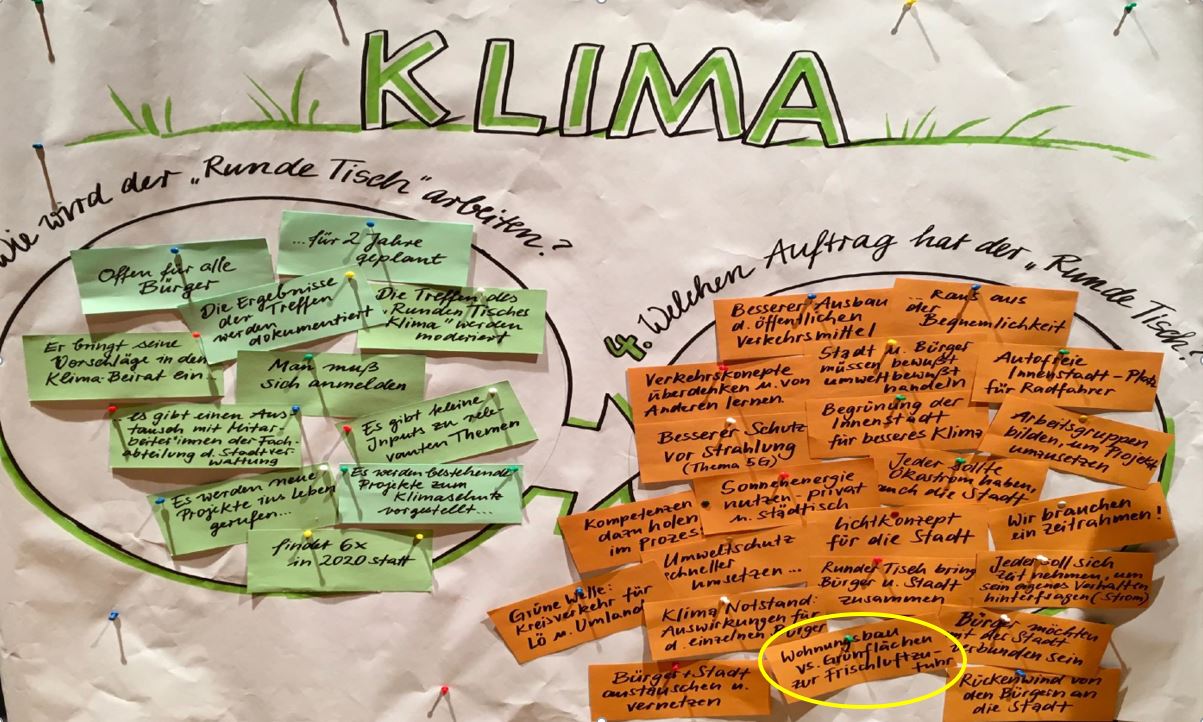 KLIMA
Wie wird der „Runde Tisch" arbeiten?
...für 2 Jahre
geplant
Offen für alle
Bürger
Die Ergebnisse
der Treffen
werden
dokumentiert
Die Treffen des
„Runden Tisches
Klima" werden
moderiert
Er bringt seine
Vorschläge in den
Klima-Beirat ein
Man muß
sich anmelden
es gibt einen Aus-
tausch mit Mitar-
beiter*innen der Fach-
abteilung d. Stadtver-
waltung
Es gibt kleine
Inputs zu rele-
vanten Themen
Es werden neue
Projekte ins Leben
gerufen...
Es werden bestehende
Projekte zum
Klimaschutz
vorgestellt...
findet 6x
in 2020 statt
4. Welchen Auftrag hat der „Runde Tisch"?
Besserer Ausbau
d. öffentlichen
Verkehrsmittel
Raus aus
der
Beqnemlichkeit
Verkehrskonzepte
überdenken u. von
Anderen lernen.
Stadt u. Bürger
müssen bewußt
umweltbewußt
handeln
Autofreie
Innenstadt - Platz
für Radfahrer
Besserer Schutz
vor Strahlung
(Thema 5G)
Begrünung der
Innenstadt
für besseres Klima
Arbeitsgruppen
bilden, um Projekt
umzusetzen
Sonnenenergie
nutzen - privat
u. städtisch
Jeder sollte
Ökostrom haben,
auch die Stadt
Kompetenzen
dazu holen
im Prozeß
Lichtkonzept
für die Stadt
Wir brauchen
ein Zeitrahmen!
Umweltschutz
schneller
umsetzen...
Runder Tisch bring
Bürger u. Stadt
zusammen
Jeder soll sich
Zeit nehmen, um
sein eigenes Verhalten
hinterfragen (Strom)
Grüne Welle:
Kreisverkehr für
Lö u. Umland
Klima Notstand:
Auswirkungen für
d. einzelnen Bürger
Wohnungsbau
vs. Grünflächen
zur Frischluftzu-
fuhr
Bürger möchten
mit der Stadt
verbunden sein
Bürger + Stadt
austauschen u.
vernetzen
Rückenwind von
den Bürgern an
die Stadt